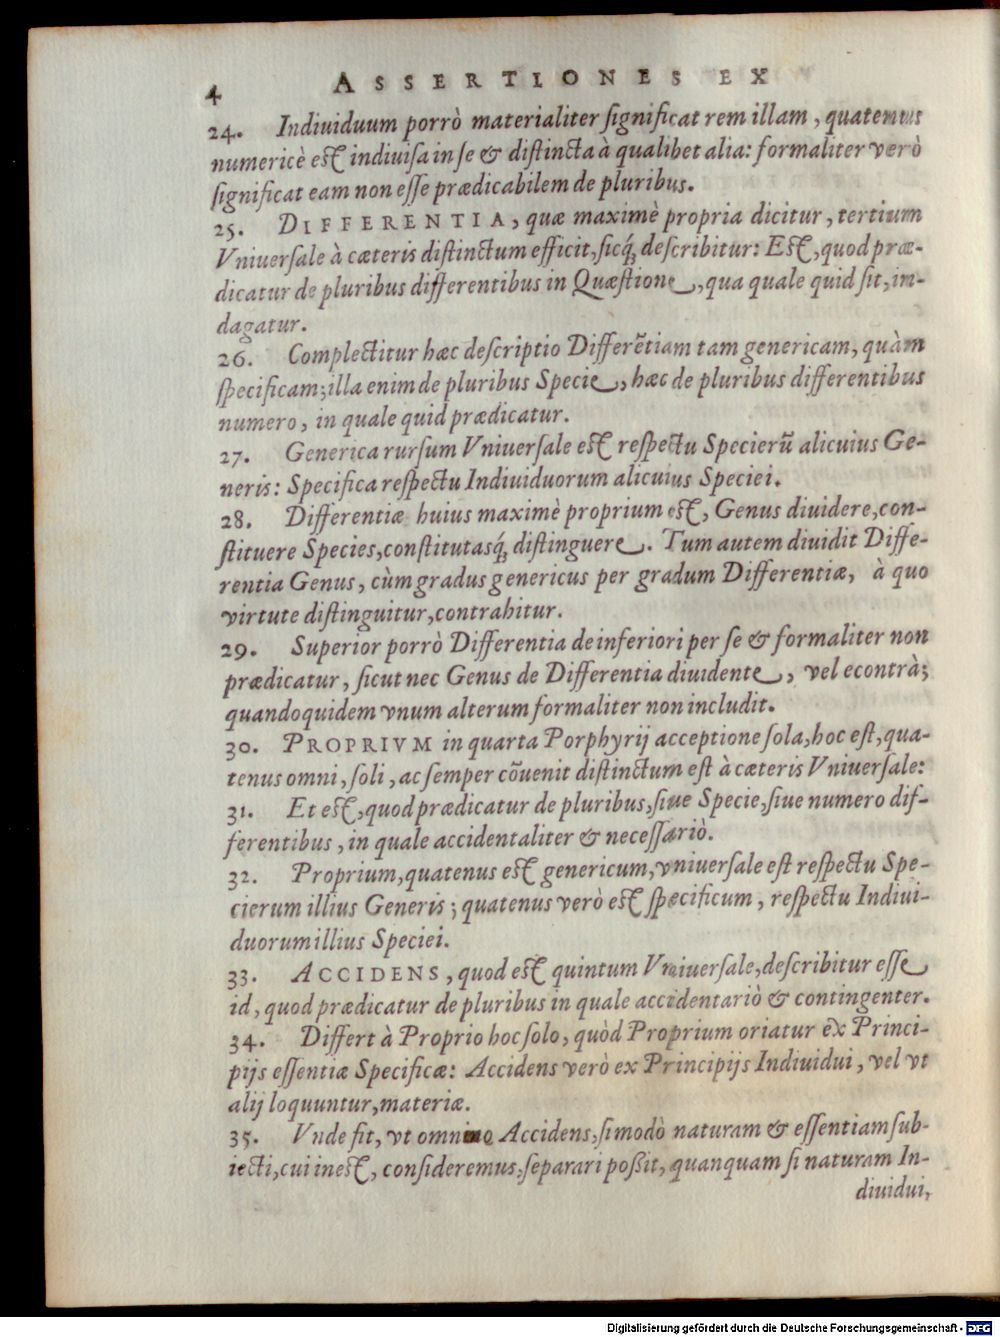 4 ASSERTIONES EX
24. Indiuiduum porrò materialiter ſignificat rem illam, quatenus
numericè eſt indiuiſa in ſe & diſtincta à qualibet alia: formaliter verò
ſignificat eam non eſſe prædicabilem de pluribus.
25. DIFFERENTIA, quæ maximè propria dicitur, tertium
Vniuerſale à cæteris diſtinctum efficit, ſicq́; deſcribitur: Eſt, quod præ-
dicatur de pluribus differentibus in Quæſtione, qua quale quid ſit, in-
dagatur.
26. Complectitur hæc deſcriptio Differẽtiam tam genericam, quàm
ſpecificam; illa enim de pluribus Specie, hæc de pluribus differentibus
numero, in quale quid prædicatur.
27. Generica rurſum Vniuerſale eſt reſpectu Specierũ alicuius Ge-
neris: Specifica reſpectu Indiuiduorum alicuius Speciei.
28. Differentiæ huius maximè proprium eſt, Genus diuidere, con-
ſtituere Species, conſtitutasq́; diſtinguere. Tum autem diuidit Diffe-
rentia Genus, cùm gradus genericus per gradum Differentiæ, à quo
virtute diſtinguitur, contrahitur.
29. Superior porrò Differentia de inferiori per ſe & formaliter non
prædicatur, ſicut nec Genus de Differentia diuidente, vel econtrà;
quandoquidem vnum alterum formaliter non includit.
30. PROPRIVM in quarta Porphyrij acceptione ſola, hoc eſt, qua-
tenus omni, ſoli, ac ſemper cõuenit diſtinctum eſt à cæteris Vniuerſale:
31. Et eſt, quod prædicatur de pluribus, ſiue Specie, ſiue numero dif-
ferentibus, in quale accidentaliter & neceſſariò.
32. Proprium, quatenus eſt genericum, vniuerſale eſt reſpectu Spe-
cierum illius Generis; quatenus verò eſt ſpecificum, reſpectu Indiui-
duorum illius Speciei.
33. ACCIDENS, quod eſt quintum Vniuerſale, deſcribitur eſſe
id, quod prædicatur de pluribus in quale accidentariò & contingenter.
34. Differt à Proprio hoc ſolo, quòd Proprium oriatur ex Princi-
pijs eſſentiæ Specificæ: Accidens verò ex Principijs Indiuidui, vel vt
alij loquuntur, materiæ.
35. Vnde fit, vt omnino Accidens, ſi modò naturam & eſſentiam ſub-
iecti, cui ineſt, conſideremus, ſeparari poßit, quanquam ſi naturam In-
diuidui,
Digitalisierung gefördert durch die Deutsche Forschungsgemeinschaft - DFG